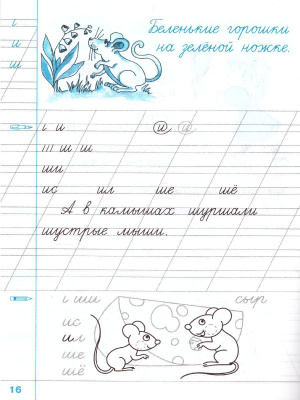 і
и
ш
Беленькие горошки
на зелёной ножке.
і и и и
ııı ш ш
ши
ис ил ше шё
А в камышах шуршали
шустрые мыши.
і ши сыр
ис
ил
ше
шё
16